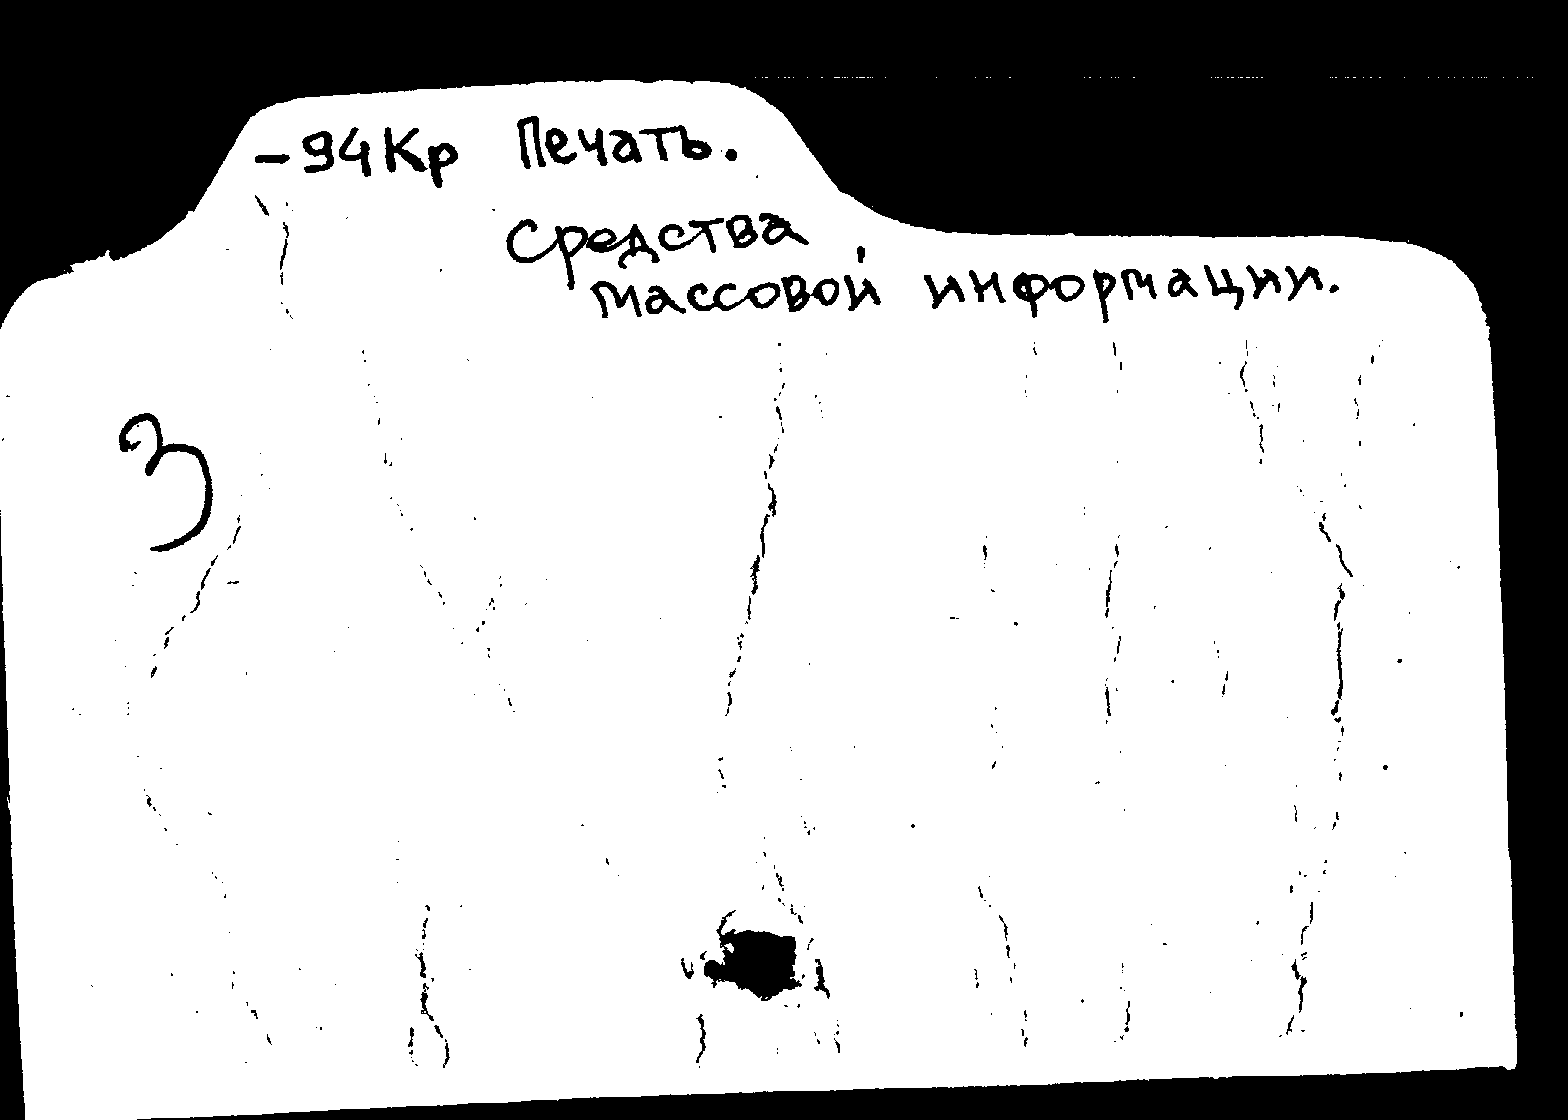 -94Кр Печать.
Средства
массовой информации.
3